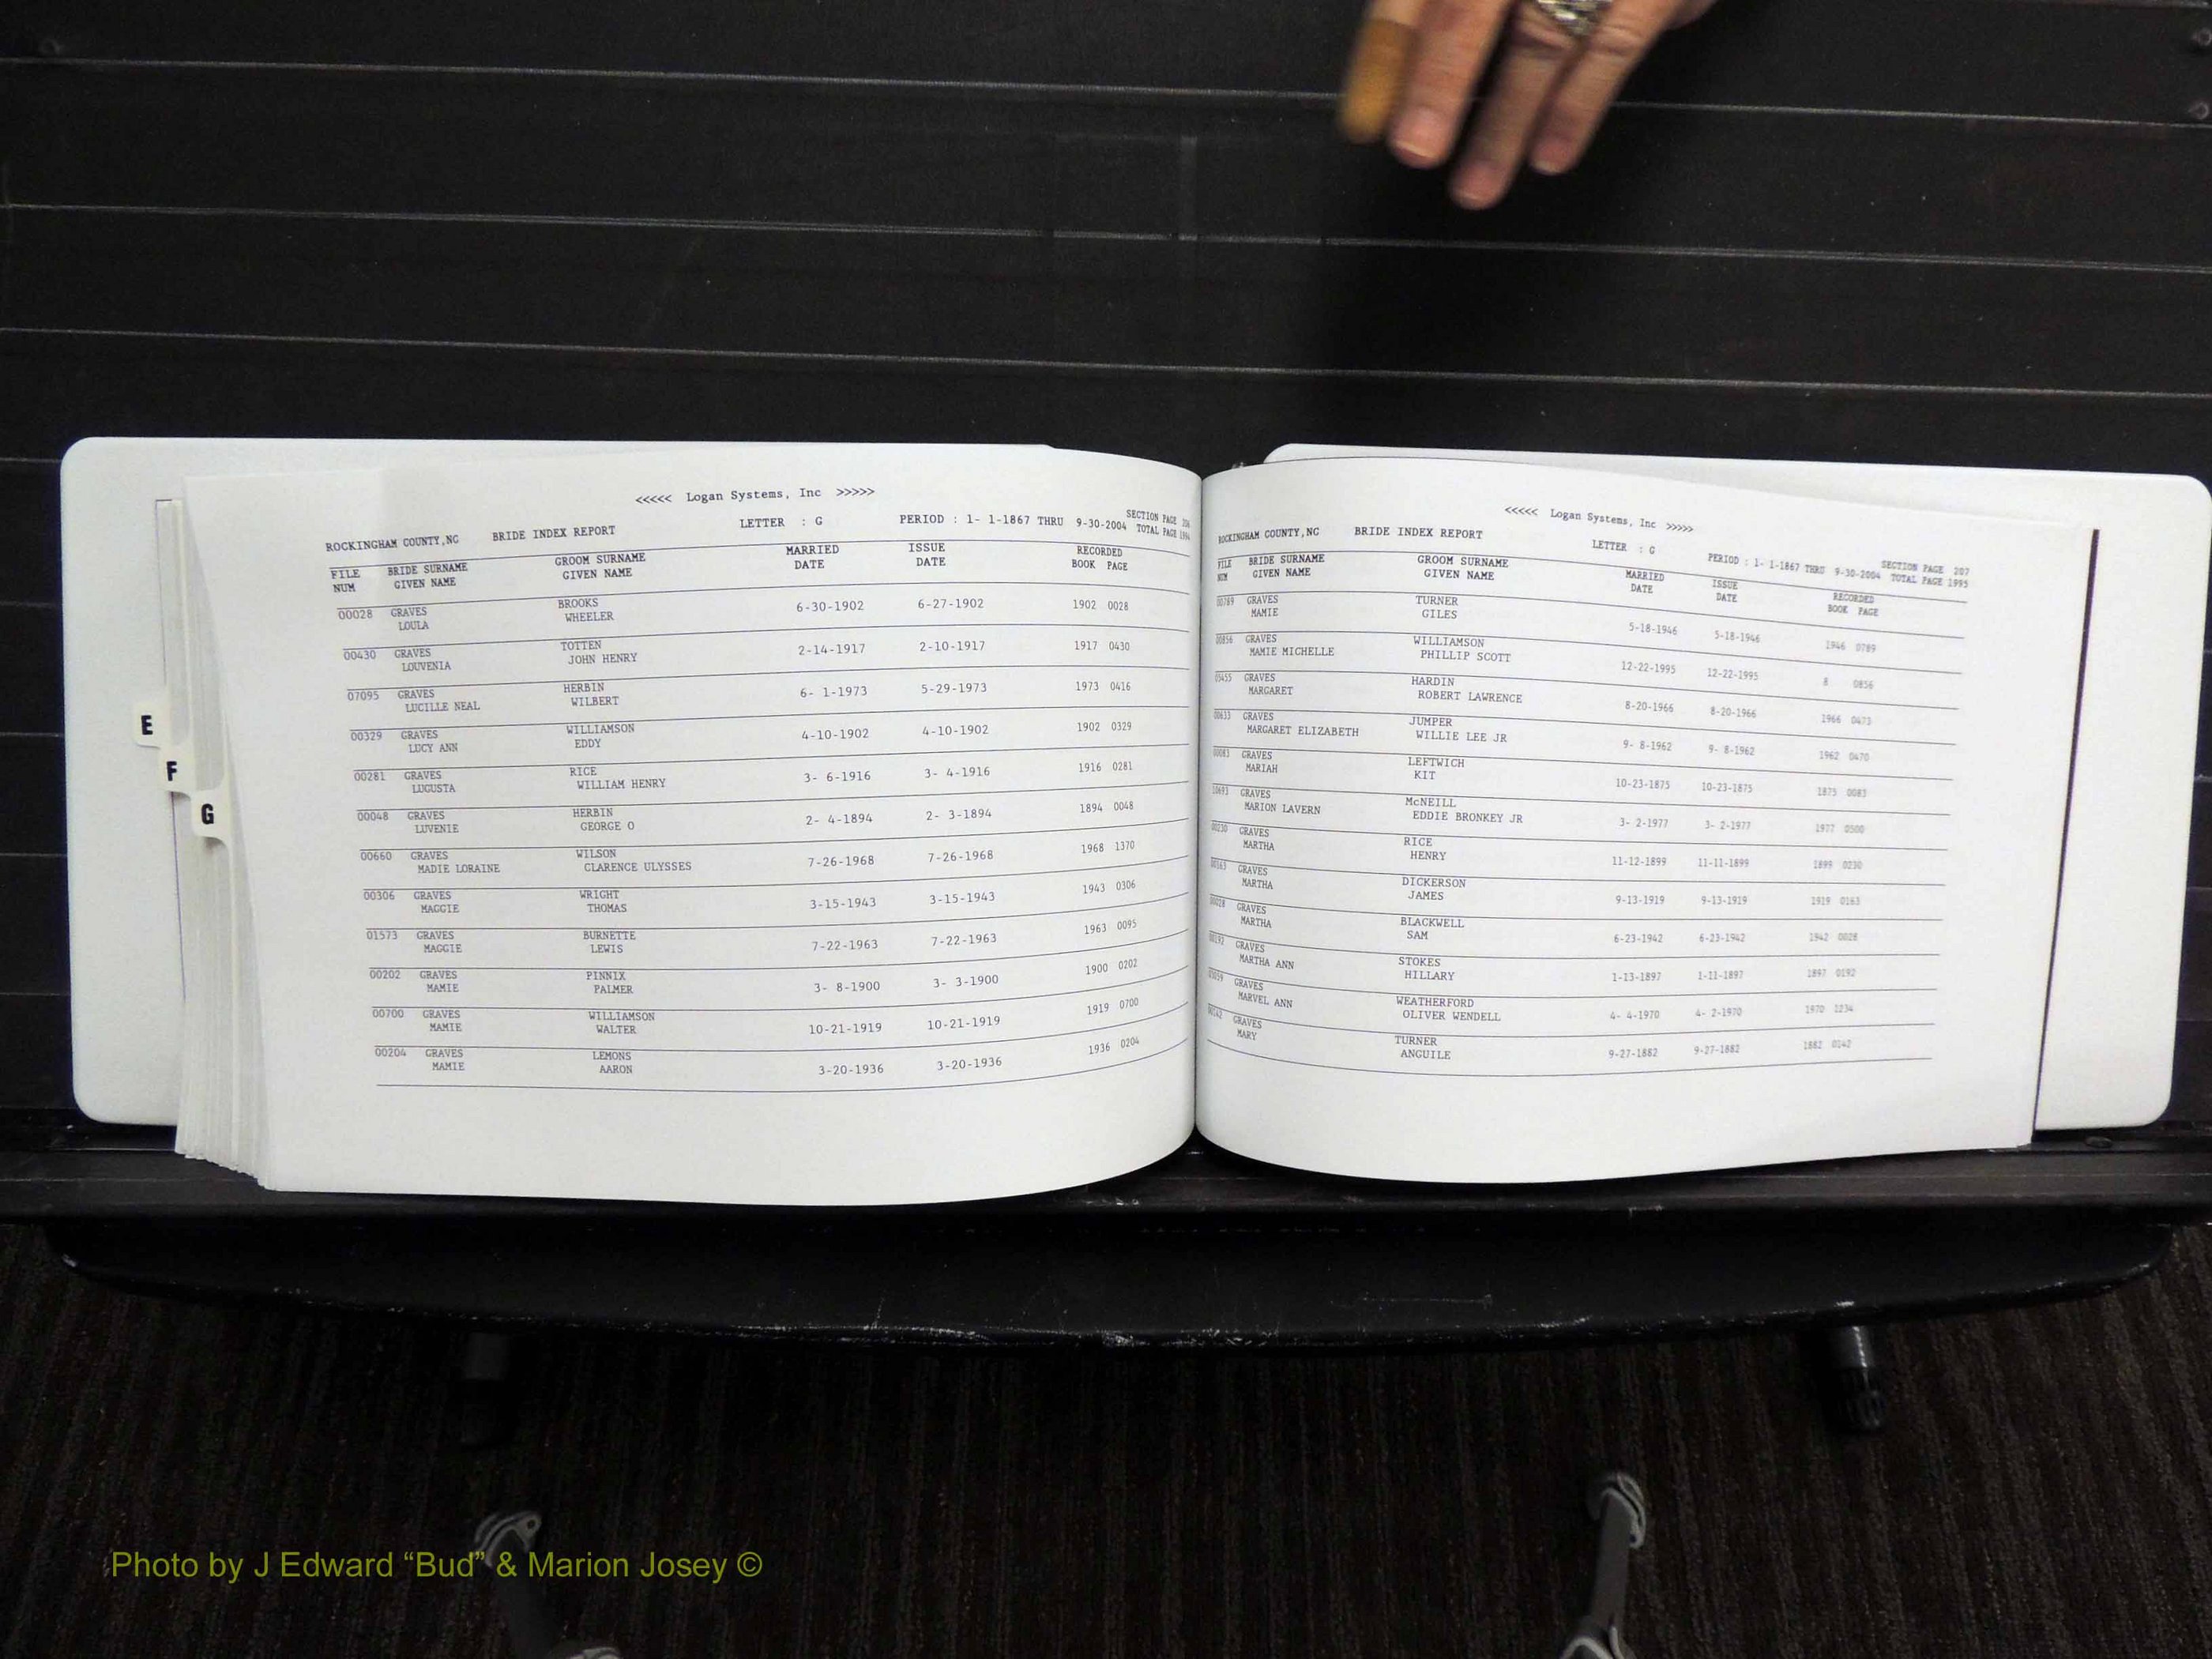 <<<<< Logan Systems, Inc >>>>>
ROCKINGHAM COUNTY,NC BRIDE INDEX REPORT LETTER : G PERIOD : 1- 1-1867 THRU 9-30-2004 SECTION PAGE
TOTAL PAGE
FILE BRIDE SURNAME GROOM SURNAME MARRIED ISSUE RECORDED
NUM GIVEN NAME GIVEN NAME DATE DATE BOOK PAGE
00028 GRAVES BROOKS 6-30-1902 6-27-1902 1902 0028
LOULA WHEELER
00430 GRAVES TOTTEN 2-14-1917 2-10-1917 1917 0430
LOUVENIA JOHN HENRY
07095 GRAVES HERBIN 6- 1-1973 5-29-1973 1973 0416
LUCILLE NEAL WILBERT
00329 GRAVES WILLIAMSON 4-10-1902 4-10-1902 1902 0329
LUCY ANN EDDY
00281 GRAVES RICE 3- 6-1916 3- 4-1916 1916 0281
LUGUSTA WILLIAM HENRY
00048 GRAVES HERBIN 2- 4-1894 2- 3-1894 1894 0048
LUVENIE GEORGE O
00660 GRAVES WILSON 7-26-1968 7-26-1968 1968 1370
MADIE LORAINE CLARENCE ULYSSES
00306 GRAVES WRIGHT 3-15-1943 3-15-1943 1943 0306
MAGGIE THOMAS
01573 GRAVES BURNETTE 7-22-1963 7-22-1963 1963 0095
MAGGIE LEWIS
00202 GRAVES PINNIX 3- 8-1900 3- 3-1900 1900 0202
MAMIE PALMER
00700 GRAVES WILLIAMSON 10-21-1919 10-21-1919 1919 0700
MAMIE WALTER
00204 GRAVES LEMONS 3-20-1936 3-20-1936 1936 0204
MAMIE AARON
<<<<< Logan Systems, Inc >>>>>
ROCKINGHAM COUNTY,NC BRIDE INDEX REPORT LETTER : G PERIOD : 1- 1-1867 THRU 9-30-2004 SECTION PAGE 207
TOTAL PAGE 1995
FILE BRIDE SURNAME GROOM SURNAME MARRIED ISSUE RECORDED
NUM GIVEN NAME GIVEN NAME DATE DATE BOOK PAGE
00789 GRAVES TURNER 5-18-1946 5-18-1946 1946 0789
MAMIE GILES
00856 GRAVES WILLIAMSON 12-22-1995 12-22-1995 8 0856
MAMIE MICHELLE PHILLIP SCOTT
GRAVES HARDIN 8-20-1966 8-20-1966 1966 0473
MARGARET ROBERT LAWRENCE
00633 GRAVES JUMPER 9- 8-1962 9- 8-1962 1962 0470
MARGARET ELIZABETH WILLIE LEE JR
00083 GRAVES LEFTWICH 10-23-1875 10-23-1875 1875 0083
MARIAH KIT
GRAVES McNEILL 3- 2-1977 3- 2-1977 1977 0500
MARION LAVERN EDDIE BRONKEY JR
00230 GRAVES RICE 11-12-1899 11-11-1899 1899 0230
MARTHA HENRY
00163 GRAVES DICKERSON 9-13-1919 9-13-1919 1919 0163
MARTHA JAMES
00028 GRAVES BLACKWELL 6-23-1942 6-23-1942 1942 0028
MARTHA SAM
00192 GRAVES STOKES 1-13-1897 1-11-1897 1897 0192
MARTHA ANN HILLARY
GRAVES WEATHERFORD 4- 4-1970 4- 2-1970 1970
MARVEL ANN OLIVER WENDELL
00142 GRAVES TURNER 9-27-1882 9-27-1882 1882 0142
MARY ANGUILE
E
F
G
Photo by J Edward “Bud” & Marion Josey ©